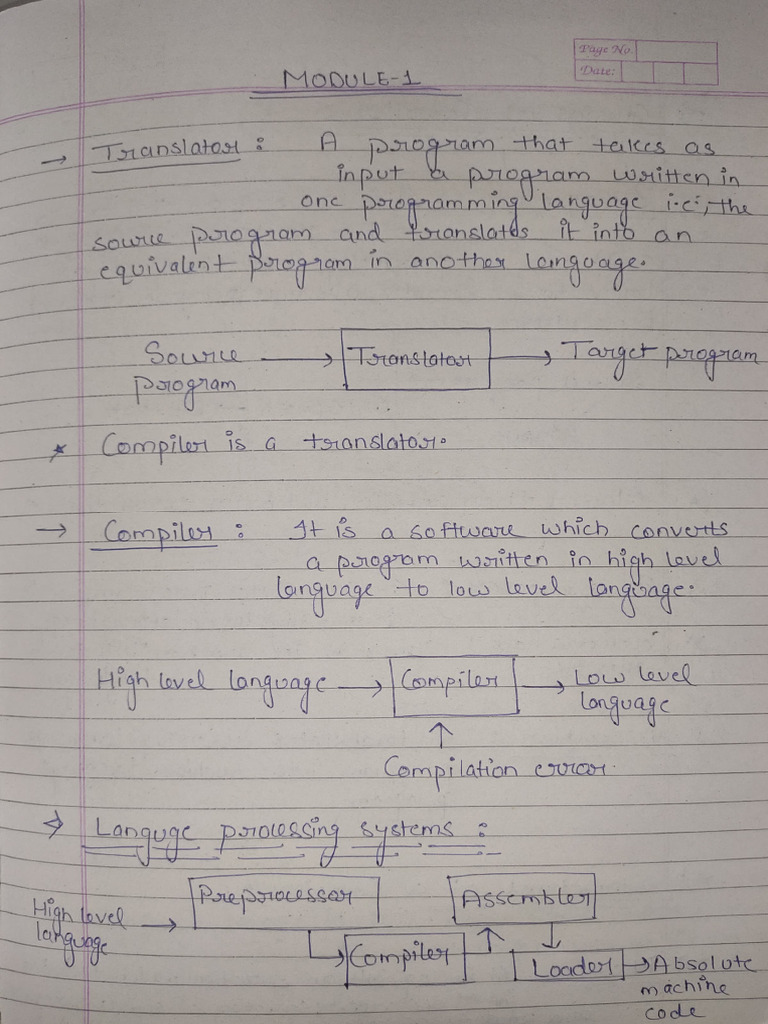 Page No
Date:
MODULE-1
→ Translator : A program that takes as
input a program written in
one programming language i.e., the
source program and translates it into an
equivalent program in another language.
Source program → Translator → Target program
* Compiler is a translator.
→ Compiler : It is a software which converts
a program written in high level
language to low level language.
High level language → Compiler → Low level
language
↑
Compilation error.
⇒ Languge processing systems :
High level
language → Preprocessor
Compiler
Assembler
Loader → Absolute
machine
code